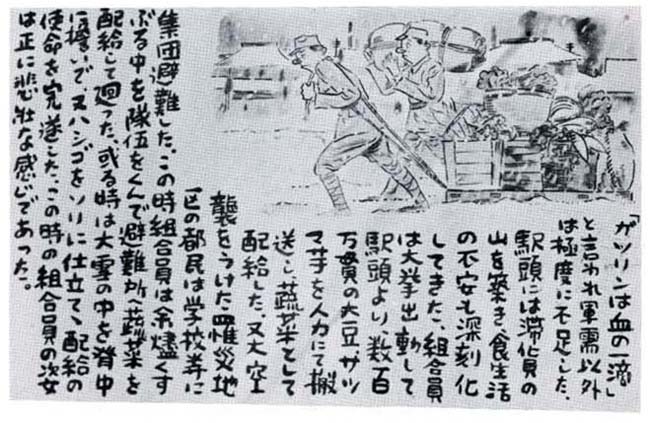 「ガソリンは血の一滴」
と言われ軍需以外
は極度に不足した、
駅頭には滞貨の
山を築き、食生活
の不安も深刻化
してきた、組合員
は大挙出動して
駅頭より、数百
万貫の大豆、サツ
マ芋を人力にて搬
送し、蔬菜として
配給した、又大空
襲をうけた罹災地
区の都民は学校等に
集団避難した、この時組合員は余燼くす
ぶる中を隊伍をくんで避難所へ蔬菜を
配給して廻った、或る時は大雪の中を背中
に擔いで、又ハシゴをソリに仕立てゝ配給の
使命を完遂した、この時の組合員の姿
は正に悲壮な感じであった。